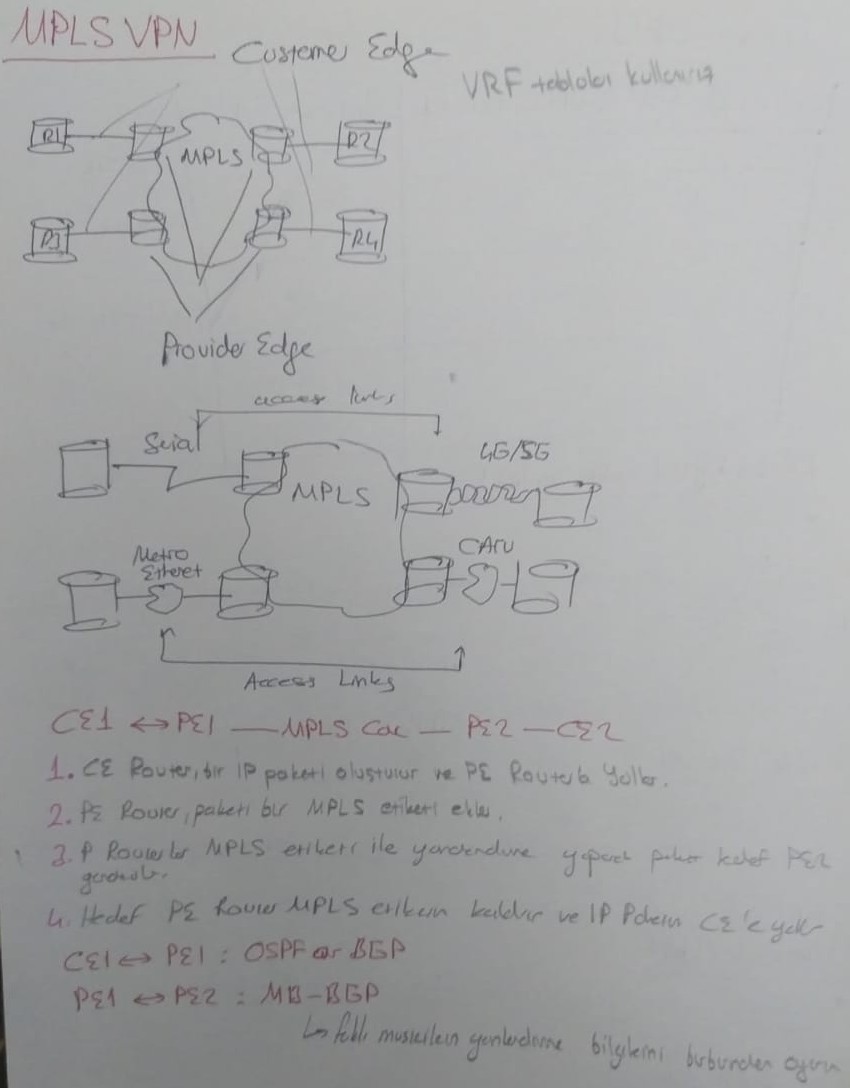 MPLS VPN
Custemer Edge
VRF tabloları kullanırız
R1
MPLS
R2
R3
R4
Provider Edge
access links
Serial
4G/5G
MPLS
Metro
Etheret
CATV
Access Links
CE1 ↔ PE1 — MPLS Coc — PE2 — CE2
1. CE Router, bir IP paketi oluşturur ve PE Router'a yollar.
2. PE Router, paketi bir MPLS etiketi ekler.
3. P Routerlar MPLS etiketi ile yönlendirme yaparak paket hedef PE2
gönderilir.
4. Hedef PE Router MPLS etiketin kaldırır ve IP Paketin CE'e yollar
CE1 ↔ PE1 : OSPF or BGP
PE1 ↔ PE2 : MB-BGP
↳ farklı müşterilerin yönlendirme bilgilerini birbirinden ayırır